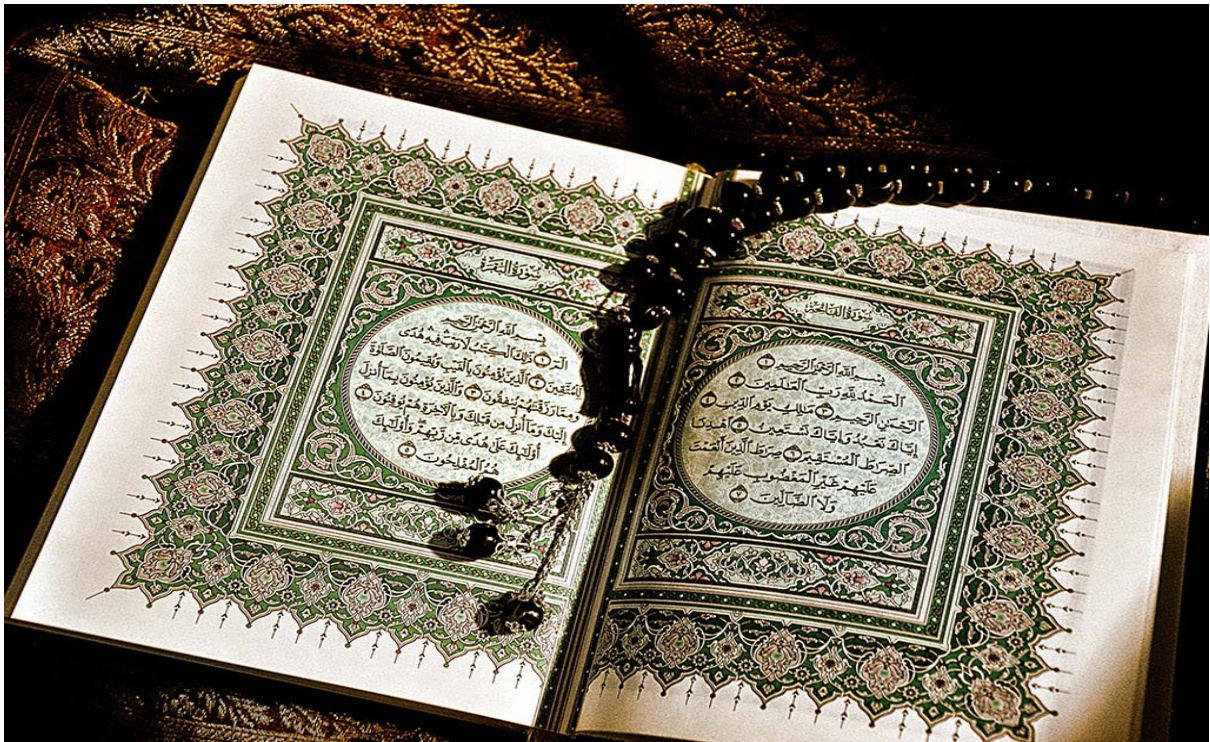 سُورَةُ الفَاتِحَةِ
بِسْمِ اللَّهِ الرَّحْمَٰنِ الرَّحِيمِ ١
الْحَمْدُ لِلَّهِ رَبِّ الْعَٰلَمِينَ ٢
الرَّحْمَٰنِ الرَّحِيمِ ٣ مَٰلِكِ يَوْمِ الدِّينِ ٤
إِيَّاكَ نَعْبُدُ وَإِيَّاكَ نَسْتَعِينُ ٥ اهْدِنَا
الصِّرَٰطَ الْمُسْتَقِيمَ ٦ صِرَٰطَ الَّذِينَ أَنْعَمْتَ
عَلَيْهِمْ غَيْرِ الْمَغْضُوبِ عَلَيْهِمْ
وَلَا الضَّالِّينَ ٧
سُورَةُ البَقَرَةِ
بِسْمِ اللَّهِ الرَّحْمَٰنِ
الٓمٓ ١ ذَٰلِكَ الْكِتَٰبُ لَا رَيْبَ فِيهِ هُدًى
لِّلْمُتَّقِينَ ٢ الَّذِينَ يُؤْمِنُونَ بِالْغَيْبِ وَيُقِيمُونَ الصَّلَوٰةَ
وَمِمَّا رَزَقْنَٰهُمْ يُنفِقُونَ ٣ وَالَّذِينَ يُؤْمِنُونَ بِمَا أُنزِلَ
إِلَيْكَ وَمَا أُنزِلَ مِن قَبْلِكَ وَبِالْآخِرَةِ هُمْ يُوقِنُونَ ٤
أُولَٰئِكَ عَلَىٰ هُدًى مِّن رَّبِّهِمْ وَأُولَٰئِكَ
هُمُ الْمُفْلِحُونَ ٥